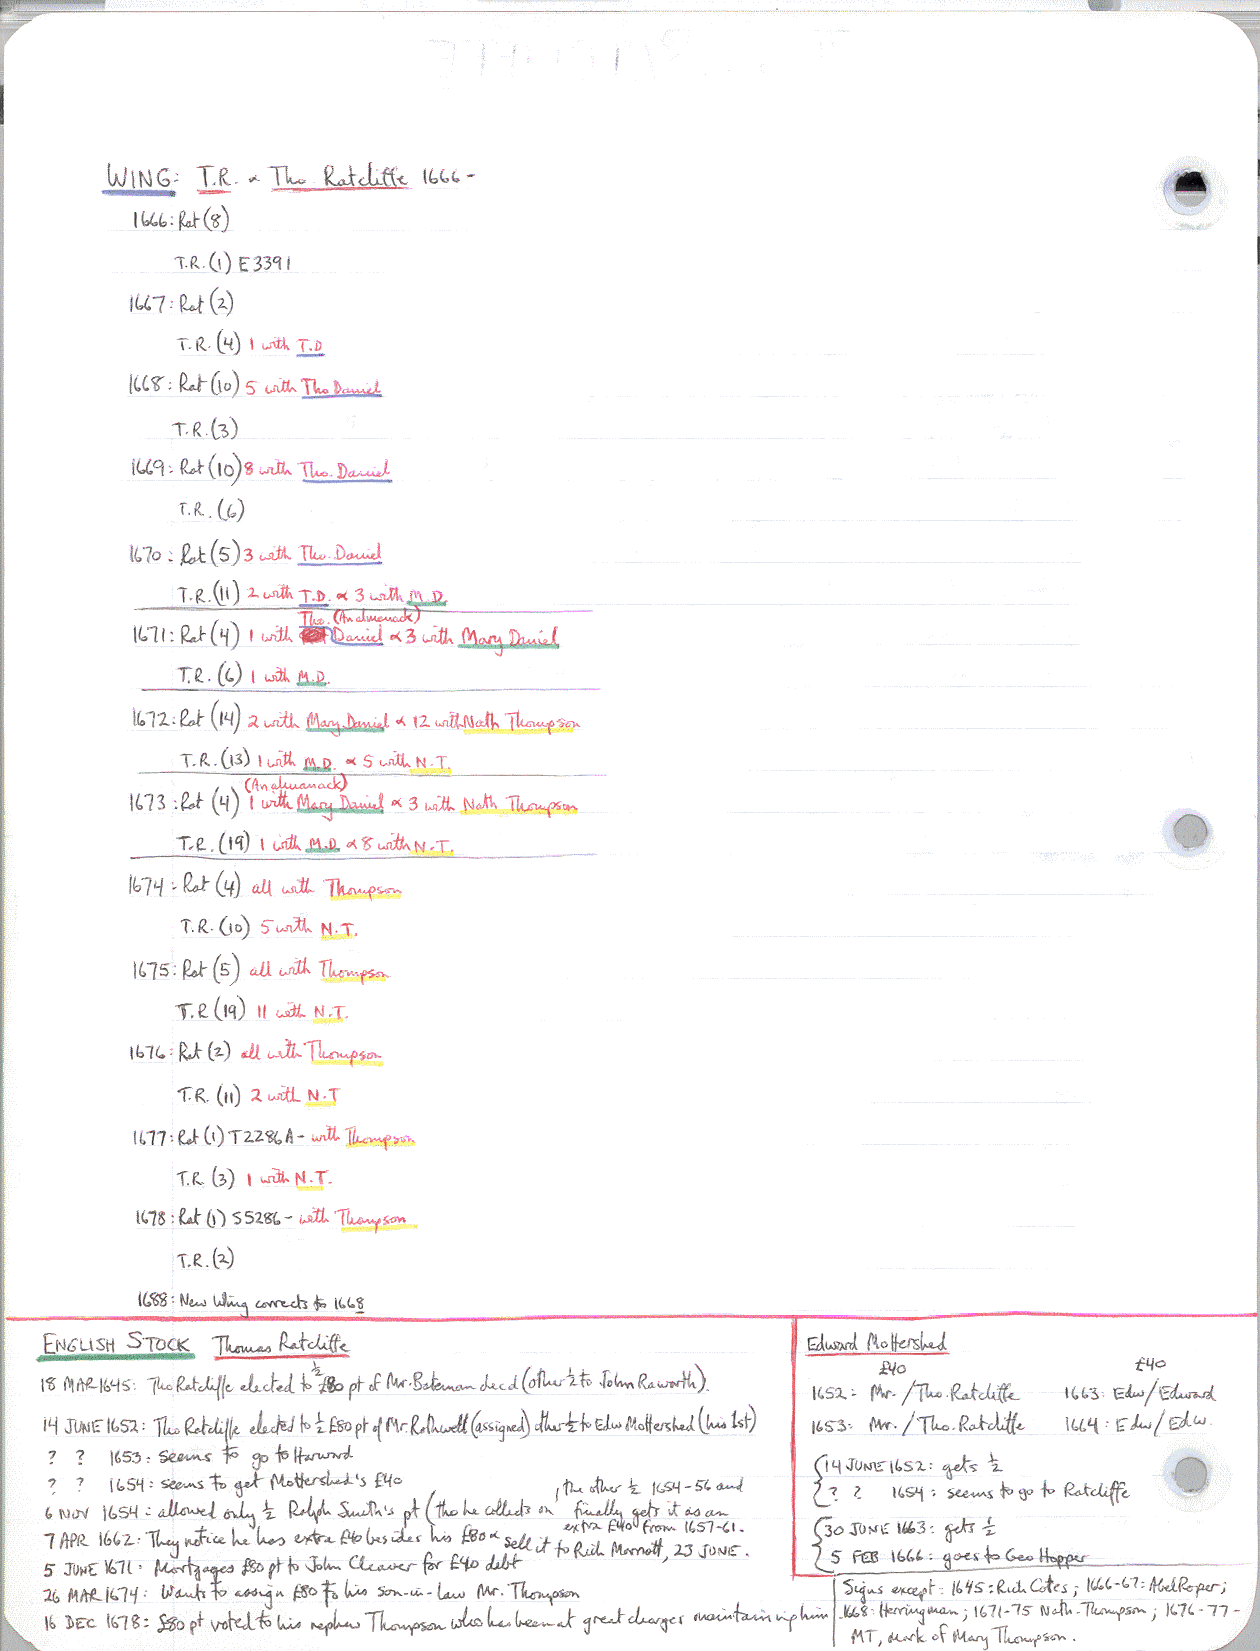 WING: T.R. & Tho Ratcliffe 1666-
1666: Rat (8)
T.R. (1) E3391
1667: Rat (2)
T.R. (4) 1 with T.D
1668: Rat (10) 5 with Tho Daniel
T.R. (3)
1669: Rat (10) 8 with Tho. Daniel
T.R. (6)
1670: Rat (5) 3 with Tho. Daniel
T.R. (11) 2 with T.D. & 3 with M.D.
Tho. (An almanack)
1671: Rat (4) 1 with Daniel & 3 with Mary Daniel
T.R. (6) 1 with M.D.
1672: Rat (14) 2 with Mary Daniel & 12 with Nath Thompson
T.R. (13) 1 with M.D. & 5 with N.T.
(An almanack)
1673: Rat (4) 1 with Mary Daniel & 3 with Nath Thompson
T.R. (19) 1 with M.D. & 8 with N.T.
1674: Rat (4) all with Thompson
T.R. (10) 5 with N.T.
1675: Rat (5) all with Thompson
T.R (19) 11 with N.T.
1676: Rat (2) all with Thompson
T.R. (11) 2 with N.T
1677: Rat (1) T2286A - with Thompson
T.R. (3) 1 with N.T.
1678: Rat (1) S5286 - with Thompson
T.R. (2)
1688: New Wing corrects to 1668
ENGLISH STOCK Thomas Ratcliffe
18 MAR 1645: Tho Ratcliffe elected to ½ £80 pt of Mr. Bateman decd (other ½ to John Raworth).
14 JUNE 1652: Tho Ratcliffe elected to ½ £80 pt of Mr. Rothwell (assigned) other ½ to Edw Mottershed (his 1st)
? ? 1653: seems to go to Harward
? ? 1654: seems to get Mottershed's £40
6 NOV 1654: allowed only ½ Ralph Smith's pt (tho he collects on, the other ½ 1654-56 and finally gets it as an extra £40 from 1657-61.
7 APR 1662: They notice he has extra £40 besides his £80 & sell it to Rich Marriott, 23 JUNE.
5 JUNE 1671: Mortgages £80 pt to John Cleaver for £40 debt
26 MAR 1674: Wants to assign £80 to his son-in-law Mr. Thompson
16 DEC 1678: £80 pt voted to his nephew Thompson who has been at great charges maintaining him
Edward Mottershed
£40 £40
1652: Mr. / Tho. Ratcliffe 1663: Edw / Edward
1653: Mr. / Tho. Ratcliffe 1664: Edw / Edw.
14 JUNE 1652: gets ½
? ? 1654: seems to go to Ratcliffe
30 JUNE 1663: gets ½
5 FEB 1666: goes to Geo Hopper
Signs except: 1645: Rich Cotes; 1666-67: Abel Roper;
1668: Herringman; 1671-75 Nath. Thompson; 1676-77-
MT, mark of Mary Thompson.